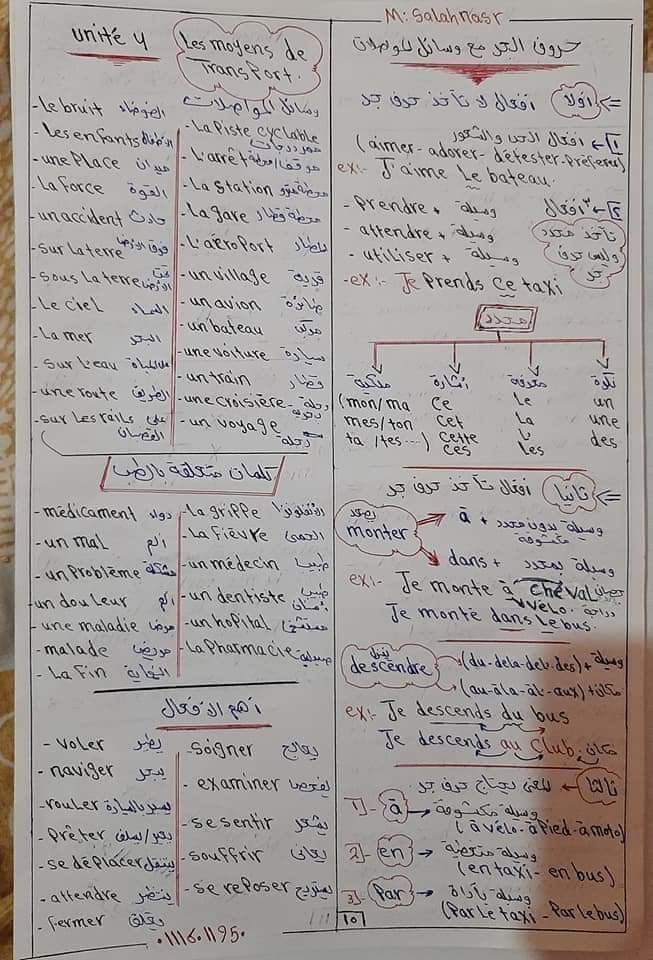 M: Salah Nasr
unité 4
Les moyens de Transport.
وسائل المواصلات
- Le bruit الضوضاء
- Les enfants الأطفال
- une Place ميدان
- La Force القوة
- un accident حادث
- sur La terre فوق الأرض
- sous La terre تحت الأرض
- Le ciel السماء
- La mer البحر
- sur L'eau على المياة
- une route الطريق
- sur Les rails على القضبان
- La Piste cyclable ممر دراجات
- L'arrêt موقف / محطة
- La station محطة مترو
- La gare محطة قطار
- L'aéroport المطار
- un village قرية
- un avion طائرة
- un bateau مركب
- une voiture سيارة
- un train قطار
- une croisière رحلة بحرية
- un voyage رحلة
كلمات متعلقة بالطب
- médicament دواء
- un mal ألم
- un Problème مشكلة
- un douleur ألم
- une maladie مرض
- malade مريض
- La Fin النهاية
- La grippe الأنفلونزا
- La Fièvre الحمى
- un médecin طبيب
- un dentiste طبيب أسنان
- un hopital مستشفى
- La Pharmacie صيدلية
أهم الأفعال
- voler يطير
- naviger يبحر
- rouler يسير بالسيارة
- Prêter يعير / يسلف
- se déplacer يتنقل
- attendre ينتظر
- Fermer يغلق
- soigner يعالج
- examiner يفحص
- se sentir يشعر
- souffrir يعانى
- se reposer يستريح
٠١١١٦٠١١٩٥٠
حروف الجر مع وسائل المواصلات
<= أولا أفعال لا تأخذ حرف جر
1 ← أفعال الحب والشعور
(aimer - adorer - détester - Préferer)
ex:- J'aime Le bateau.
2 ← ٣ أفعال
تأخذ محدد وليس حرف جر
- Prendre + وسيلة
- attendre + وسيلة
- utiliser + وسيلة
- ex:- Je Prends ce taxi
محدد
نكرة
un
une
des
معرفة
Le
La
L'
Les
أشارة
ce
cet
cette
ces
ملكية
(mon/ma
mes/ton
ta/tes...)
<= ثانيا أفعال تأخذ حرف جر
يصعد monter
à + وسيلة بدون محدد مكشوفة
dans + وسيلة بمحدد
ex:- Je monte à cheval حصان
vélo. دراجة
Je monte dans Le bus.
ينزل descendre
(du - dela - del' - des) + وسيلة
(au - àla - àl' - aux) + مكان
ex:- Je descends du bus
Je descends au Club. مكان
ثالثا ← المعنى يحتاج حرف جر
1- à → وسيلة مكشوفة
(à vélo - à Pied - à moto)
2- en → وسيلة متغطية
(en taxi - en bus)
3- Par → وسيلة بأداة
(Par Le taxi - Par Le bus)
١٥